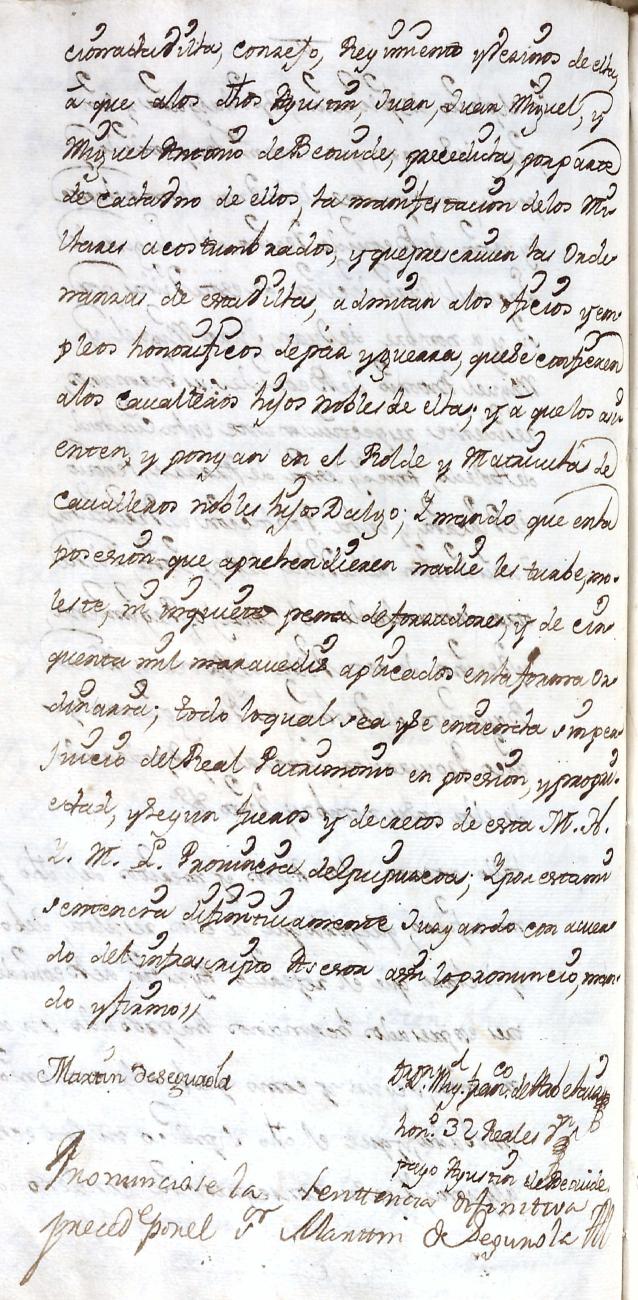 cionada Villa, consejo, Regimiento y Vecinos de ella,
a que alos dhos Agustin, Juan, Juan Miguel, y
Miguel Antonio de Beovide, precedida, por parte
de cada uno de ellos, la manifestacion delos Mi-
llares acostumbrados, y que prescriven las Orde-
nanzas de esta Villa, admitan alos oficios y em-
pleos honorificos de paz y guerra, que se confieren
alos cavalleros hijos nobles de ella; y a que los asi-
enten, y pongan en el Rolde y Matricula de
Cavalleros nobles hijos Dalgo; Y mando que en la
posesion que aprehendieren nadie les turbe, mo-
leste, ni inquiete pena de forzadores, y de cin-
quenta mil maravedis aplicados en la forma Or-
dinaria; todo lo qual sea y se entienda sin per-
juicio del Real Patrimonio en posesion, y propi-
edad, y segun fueros y decretos de esta M. N.
Y. M. L. Provincia de Guipuzcoa; Y por esta mi
sentencia difinitivamente Juzgando con acuer-
do del infrascripto Asesor assi lo pronuncio, man-
do y firmo,,
Martin de Segurola
Fran.co de
hon.s 32 Reales
pago Agustin de Beovide
Pronunciose la Senttencia difinitiva
preced.e por el S.or Martin de Segurola